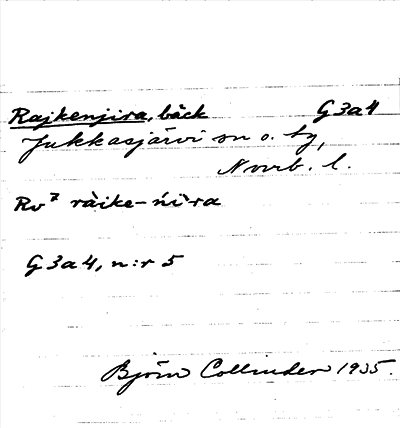 Rajkenjira, bäck G3a4
Jukkasjärvi sn o. tg,
Norrb. l.
Rv⁷ ràike-ńi`ra
G3a4, n:r 5
Björn Collinder 1935.